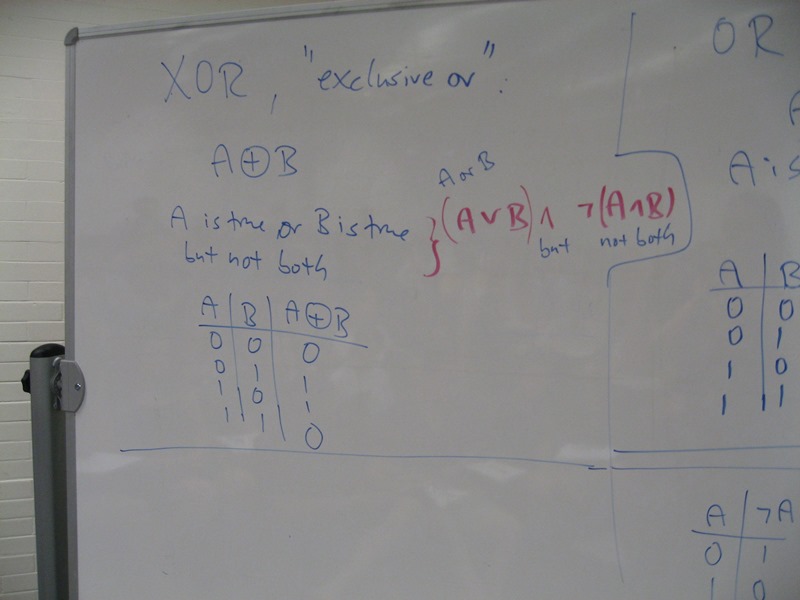 XOR, "exclusive or":
A⊕B
A is true or B is true
but not both
A or B
} (A∨B) ∧ ¬(A∧B)
but not both
A B A⊕B
0 0 0
0 1 1
1 0 1
1 1 0
OR
A is
A B
0 0
0 1
1 0
1 1
A ¬A
0 1
1 0